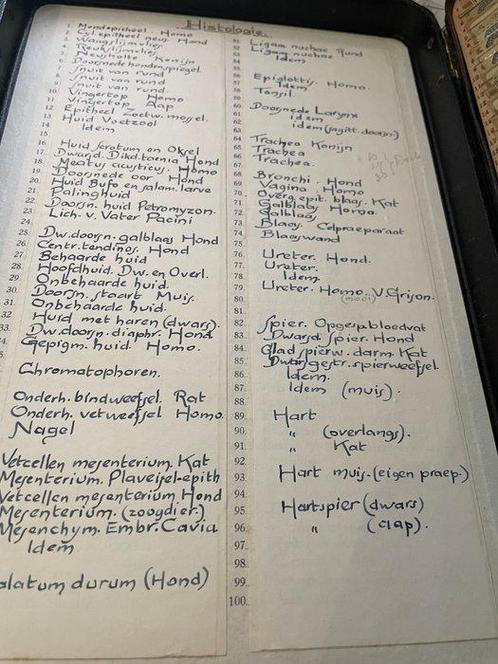 Histologie.
1. Mondepitheel Homo
2. Cyl. epitheel neus. Hond
3. Wangslijmvlies
4. Reukslijmvlies
5. Neusholte Konijn
6. Doorsnede hondensnuit
7. Snuit van rund
8. Snuit van rund
9. Snuit van rund.
10. Vingertop Homo
11. Vingertop Aap
12. Epitheel Zoetw. mossel.
13. Huid Voetzool
14. Idem
15.
16. Huid scrotum en Oksel
17. Dwarsd. Dikd. taenia Hond
18. Meatus acusticus. Homo
19. Doorsnede oor Hond
20. Huid Bufo en salam. larve
21. Palinghuid
22. Doorsn. huid Petromyzon.
23. Lich. v. Vater Pacini
25. Dw. doorsn. galblaas Hond
26. Centr. tendinos. Hond
27. Behaarde huid
28. Hoofdhuid Dw. en Overl.
29. Onbehaarde huid.
30. Doorsn. staart Muis.
31. Onbehaarde huid.
32. Huid met haren (dwars).
33. Dw. doorsn. diaphr. Hond
34. Gepigm. huid Homo.
Chromatophoren.
Onderh. bindweefsel Rat
Onderh. vetweefsel Homo.
Nagel
Vetcellen mesenterium. Kat
Mesenterium. Plaveisel-epith
Vetcellen mesenterium Hond
Mesenterium. (zoogdier.)
Mesenchym. Embr. Cavia
Idem
palatum durum (Hond)
51. Ligam nuchae Rund
52. Ligam nuchae
53. Idem
Epiglottis. Homo.
Idem
Tonsil.
60. Doorsnede Larynx
61. idem
62. idem (sagitt. doorsn)
63.
64. Trachea Konijn
65. Trachea
66. Trachea.
67.
68. Bronchi. Hond
69. Vagina Homo
70. Overg. epit. blaas. Kat
71. Galblaas Homo.
72. Galblaas
73. Blaas. Celpraeparaat
74. Blaaswand
75.
76. Ureter. Hond.
77. Ureter.
78. Idem.
79. Ureter. Homo. V. Grison.
80. (mooi)
81.
82. Spier. Opgesp. bloedvat
83. Dwarsd Spier. Hond
84. Glad spierw. darm. Kat
85. Dwarsgestr. spierweefsel
86. Idem.
87. Idem (muis).
88.
89. Hart
90. " (overlangs).
91. " Kat
92.
93. Hart muis. (eigen praep.)
94.
95. Hartspier (dwars)
96. " (clap).
97.
98.
99.
100.